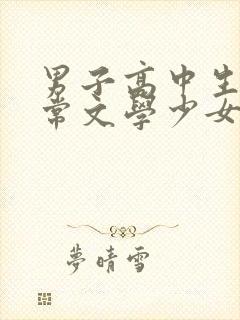 男子高中生
常文學少女
夢晴雪